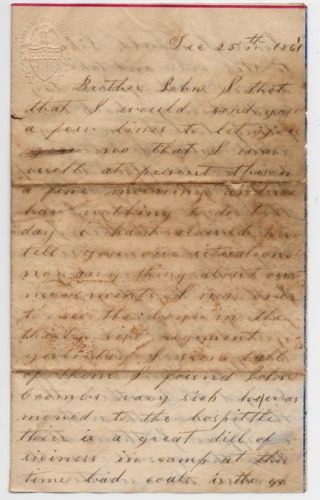 Dec 25th 1861
Brother John I thot
that I would send you
a few lines to let
no that I was
well at present this is
a fine morning and we
have nothing to do to
day I hant alowed to
tell you our situation
nor any thing about our
movements I was over
to see the boys in the
thirty regiment
yesterday I seen
of them I found John
Coombs vary sick he was
moved to the hospittle
their is a great dill of
siciness in camp at this
time bad coals is the